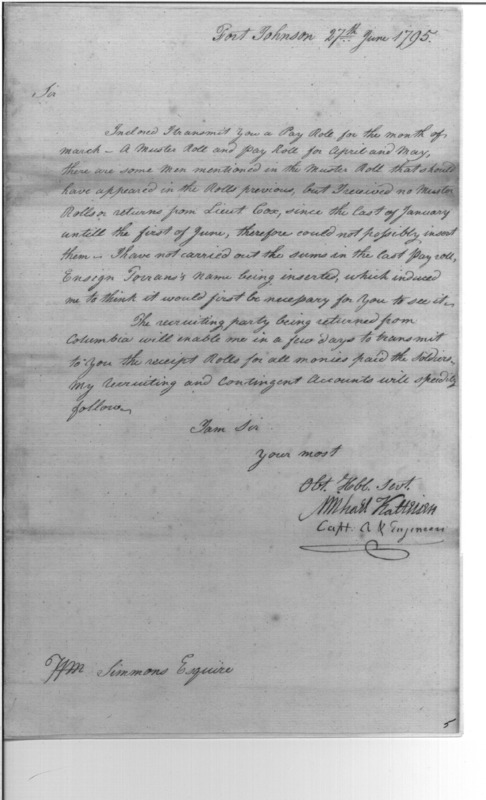 Fort Johnson 27th June 1795.
Sir
Inclosed I transmit you a Pay Roll for the month of
march – A Muster Roll and pay Roll for April and May,
there are some Men mentioned in the Muster Roll that should
have appeared in the Rolls previous, but I received no Muster
Rolls or returns from Lieut Cox, since the last of January
untill the first of June, therefore could not possibly insert
them – I have not carried out the sums in the last Pay roll,
Ensign Torrans's name being inserted, which induced
me to think it would first be necessary for you to see it –
The recruiting party being returned from
Columbia will enable me in a few days to transmit
to you the receipt Rolls for all monies paid the Soldiers
my recruiting and contingent Accounts will speedily
follow –
I am Sir
your most
Obt. Hbl. Servt.
Michael Kalteisen
Capt. A & Engineers
Wm Simmons Esquire
5